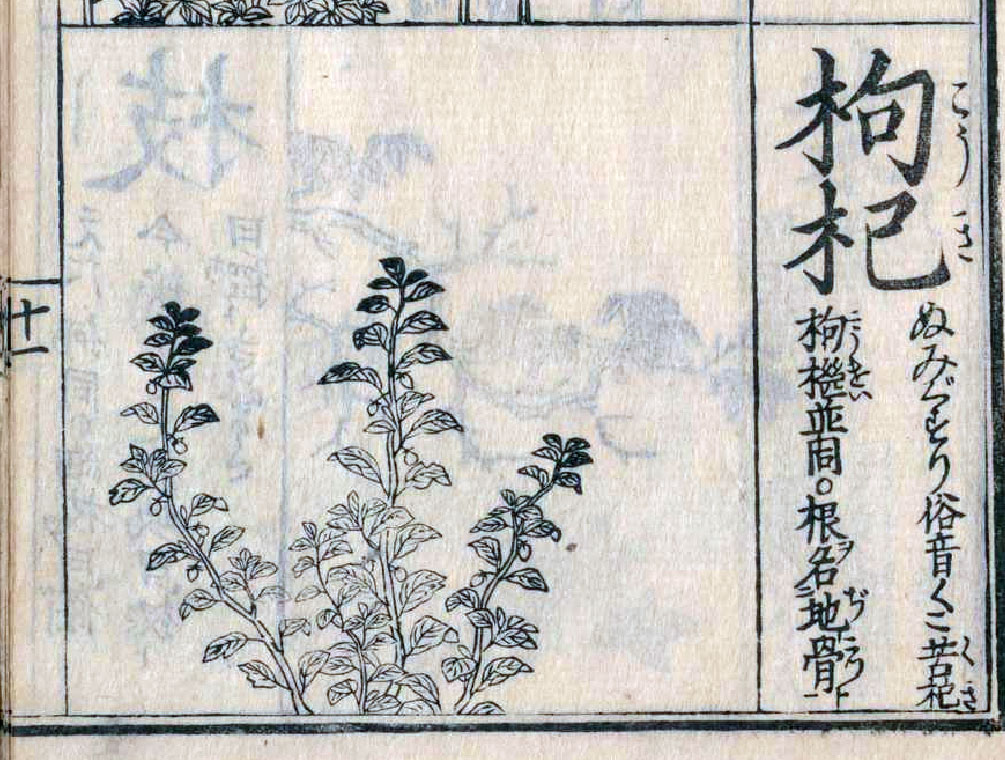 枸杞
こうき
ぬみぐすり俗音くこ苦杞
くき
枸檵並同○根名地骨
こうけい
ヲ ニ 一
ぢこつト
十一